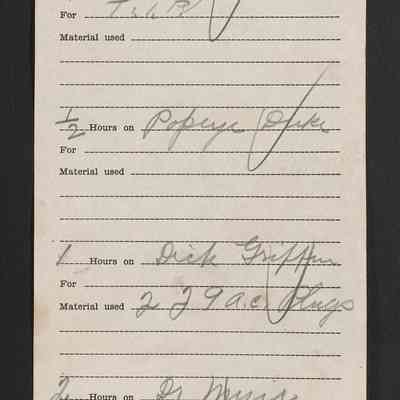 For
Material used
½ Hours on Popeye Duke
For
Material used
1 Hours on Dick Griffin
For
Material used 2 29 a.c. Plugs
2 Hours on